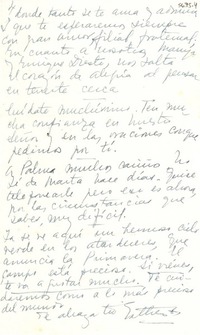 y donde tanto se te ama y admira
y que te esperaremos siempre
con gran amor filial, fraternal.
En cuanto a nosotros, Maruja
y Enrique Dieste, nos salta
el corazón de alegría al pensar
en tenerte cerca
Cuídate muchísimo. Ten mu-
cha confianza en nuestro
Señor y en las oraciones conque
pedimos por ti.
A Palma mucho cariño. No
sé de Marta hace días. Quise
telefonearle pero eso es ahora,
por las circunstancias que
sabes, muy difícil.
Ya se ve aquí un hermoso cielo
verde en los atardeceres, que
anuncia la Primavera. El
campo está precioso. Si vienes,
te va a gustar mucho. Te cui-
daremos como a lo más precioso
del mundo.
Te abraza tu